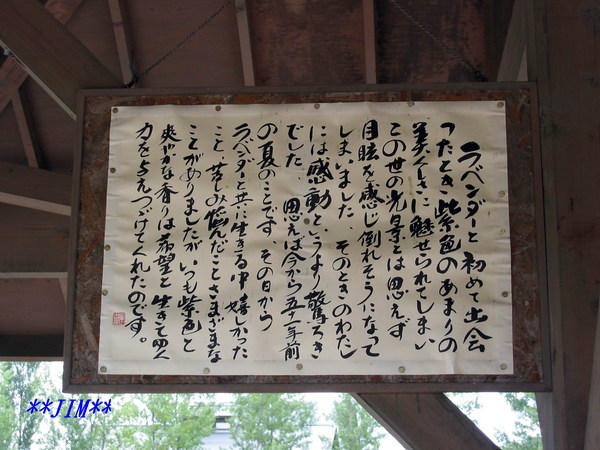 ラベンダーと初めて出会
ったとき紫色のあまりの
美くしさに魅せられてしまい
この世の光景とは思えず
目眩を感じ倒れそうになって
しまいました、そのときのわたし
には感動というより驚ろき
でした、思えば今から五十年前
の夏のことです、その日から
ラベンダーと共に生きる中嬉しかった
こと、苦しみ悩んだことさまざまな
ことがありましたが、いつも紫色と
爽やかな香りは希望と生きてゆく
力を与えつづけてくれたのです。
**JIM**